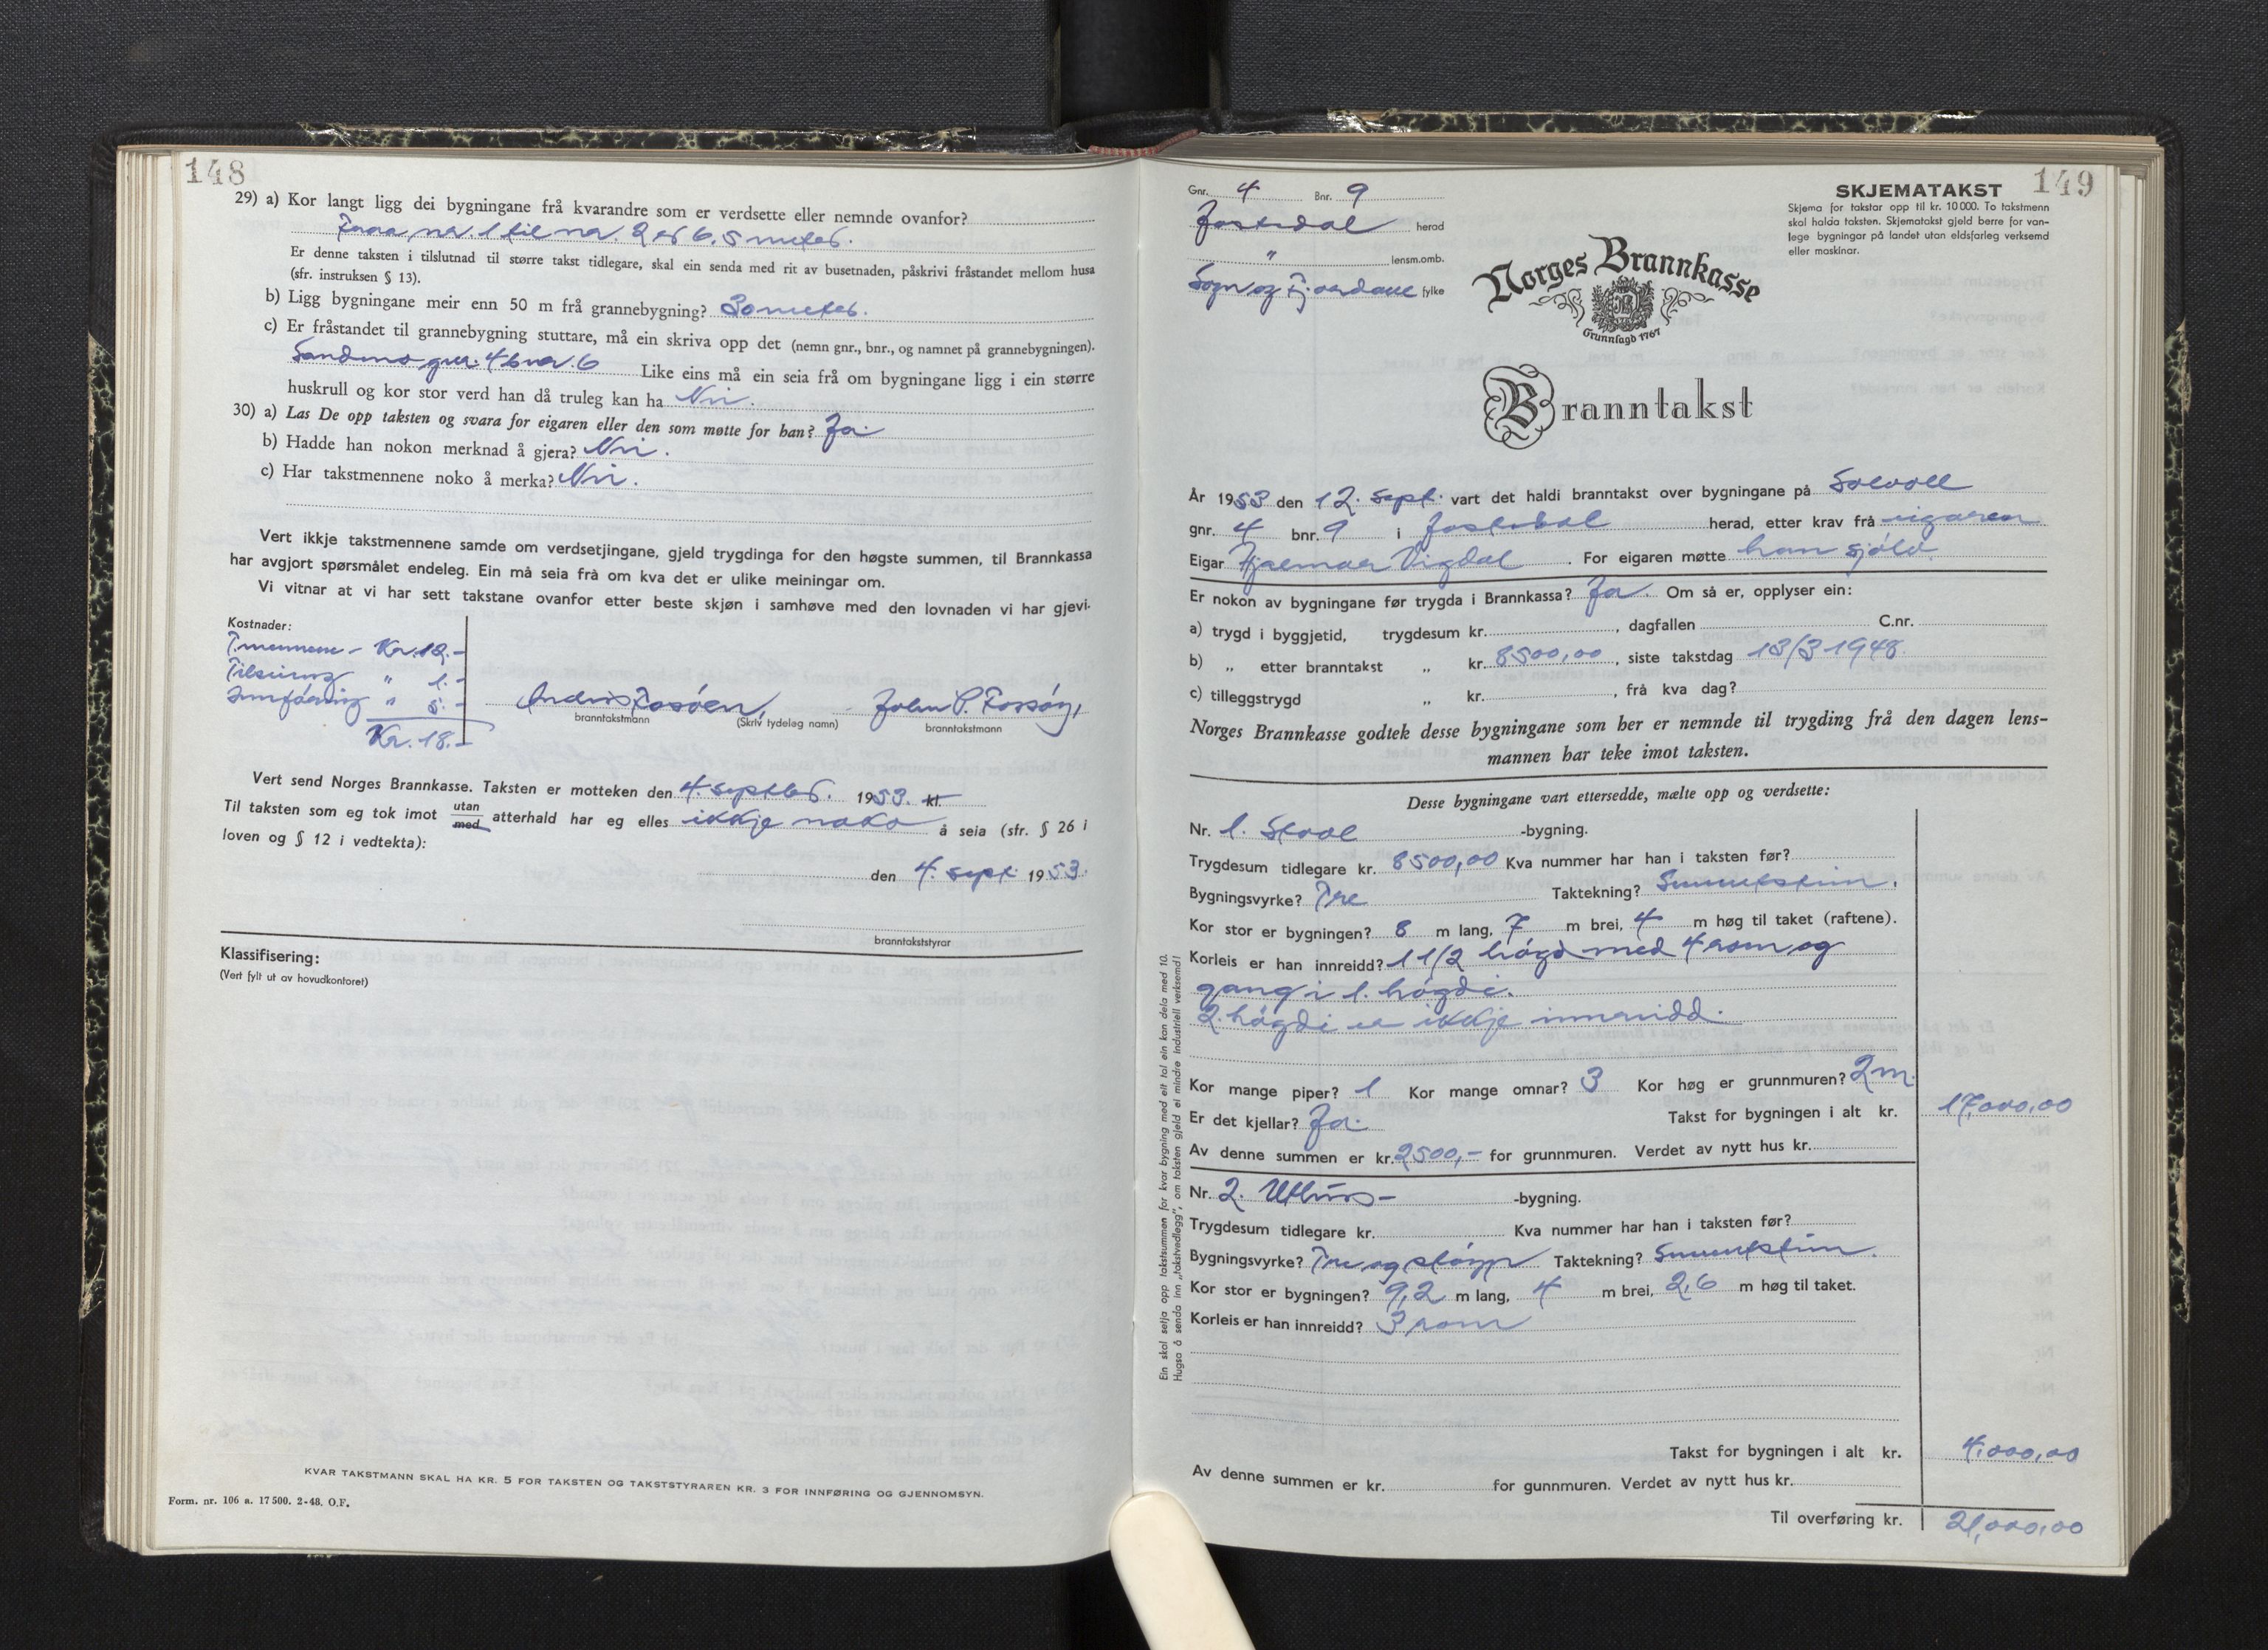 148
29) a) Kor langt ligg dei bygningane frå kvarandre som er verdsette eller nemnde ovanfor?
Fraa nr. 1 til nr. 2 er 6,5 meter.
Er denne taksten i tilslutnad til større takst tidlegare, skal ein senda med rit av busetnaden, påskrivi fråstandet mellom husa
(sfr. instruksen § 13).
b) Ligg bygningane meir enn 50 m frå grannebygning? 30 meter.
c) Er fråstandet til grannebygning stuttare, må ein skriva opp det (nemn gnr., bnr., og namnet på grannebygningen).
Sandmo gnr. 4 bnr. 6 Like eins må ein seia frå om bygningane ligg i ein større
huskrull og kor stor verd han då truleg kan ha Nei.
30) a) Las De opp taksten og svara for eigaren eller den som møtte for han? Ja.
b) Hadde han nokon merknad å gjera? Nei.
c) Har takstmennene noko å merka? Nei.
Vert ikkje takstmennene samde om verdsetjingane, gjeld trygdinga for den høgste summen, til Brannkassa
har avgjort spørsmålet endeleg. Ein må seia frå om kva det er ulike meiningar om.
Vi vitnar at vi har sett takstane ovanfor etter beste skjøn i samhøve med den lovnaden vi har gjevi.
Kostnader:
T.mennene - Kr. 12.-
" 1.-
Innføring " 5.-
Kr. 18.-
Anders Fossøen, John P. Fossøy,
branntakstmann (Skriv tydeleg namn) branntakstmann
Vert send Norges Brannkasse. Taksten er motteken den 4. septbr. 1953. kl.
Til taksten som eg tok imot utan/med atterhald har eg elles ikkje noko å seia (sfr. § 26 i
loven og § 12 i vedtekta):
den 4. sept. 1953.
branntakststyrar
Klassifisering:
(Vert fylt ut av hovudkontoret)
KVAR TAKSTMANN SKAL HA KR. 5 FOR TAKSTEN OG TAKSTSTYRAREN KR. 3 FOR INNFØRING OG GJENNOMSYN.
Form. nr. 106 a. 17 500. 2-48. O.F.
149
Gnr. 4 Bnr. 9
Jostedal herad
" lensm.omb.
Sogn og Fjordane fylke
SKJEMATAKST
Skjema for takstar opp til kr. 10 000. To takstmenn
skal halda taksten. Skjematakst gjeld berre for van-
lege bygningar på landet utan eldsfarleg verksemd
eller maskinar.
Norges Brannkasse
Grunnlagd 1767
Branntakst
År 1953 den 12. sept. vart det haldi branntakst over bygningane på Solvoll
gnr. 4 bnr. 9 i Jostedal herad, etter krav frå eigaren
Eigar Hjalmar Vigdal. For eigaren møtte han sjølv
Er nokon av bygningane før trygda i Brannkassa? Ja. Om så er, opplyser ein:
a) trygd i byggjetid, trygdesum kr. , dagfallen C.nr.
b) „ etter branntakst „ kr. 8500,00, siste takstdag 13/3 1948.
c) tilleggstrygd „ kr. , frå kva dag?
Norges Brannkasse godtek desse bygningane som her er nemnde til trygding frå den dagen lens-
mannen har teke imot taksten.
Desse bygningane vart ettersedde, mælte opp og verdsette:
Nr. 1. Stove -bygning.
Trygdesum tidlegare kr. 8500,00 Kva nummer har han i taksten før?
Bygningsvyrke? Tre Taktekning? Sementstein.
Kor stor er bygningen? 8 m lang, 7 m brei, 4 m høg til taket (raftene).
Korleis er han innreidd? 1 1/2 høgd med 4 rom og
gang i 1. høgdi.
2. høgdi er ikkje innreidd.
Kor mange piper? 1 Kor mange omnar? 3 Kor høg er grunnmuren? 2 m.
Er det kjellar? Ja. Takst for bygningen i alt kr. 17,000,00
Av denne summen er kr. 2500,- for grunnmuren. Verdet av nytt hus kr.
Nr. 2. Uthus- -bygning.
Trygdesum tidlegare kr. Kva nummer har han i taksten før?
Bygningsvyrke? Tre og støyp Taktekning? Sementstein.
Kor stor er bygningen? 9,2 m lang, 4 m brei, 2,6 m høg til taket.
Korleis er han innreidd? 3 rom
Takst for bygningen i alt kr. 4,000,00
Av denne summen er kr. for gunnmuren. Verdet av nytt hus kr.
Til overføring kr. 21,000,00
Ein skal setja opp takstsummen for kvar bygning med eit tal ein kan dela med 10.
Hugsa å senda inn „takstvedlegg", om taksten gjeld ei mindre industriell verksemd!